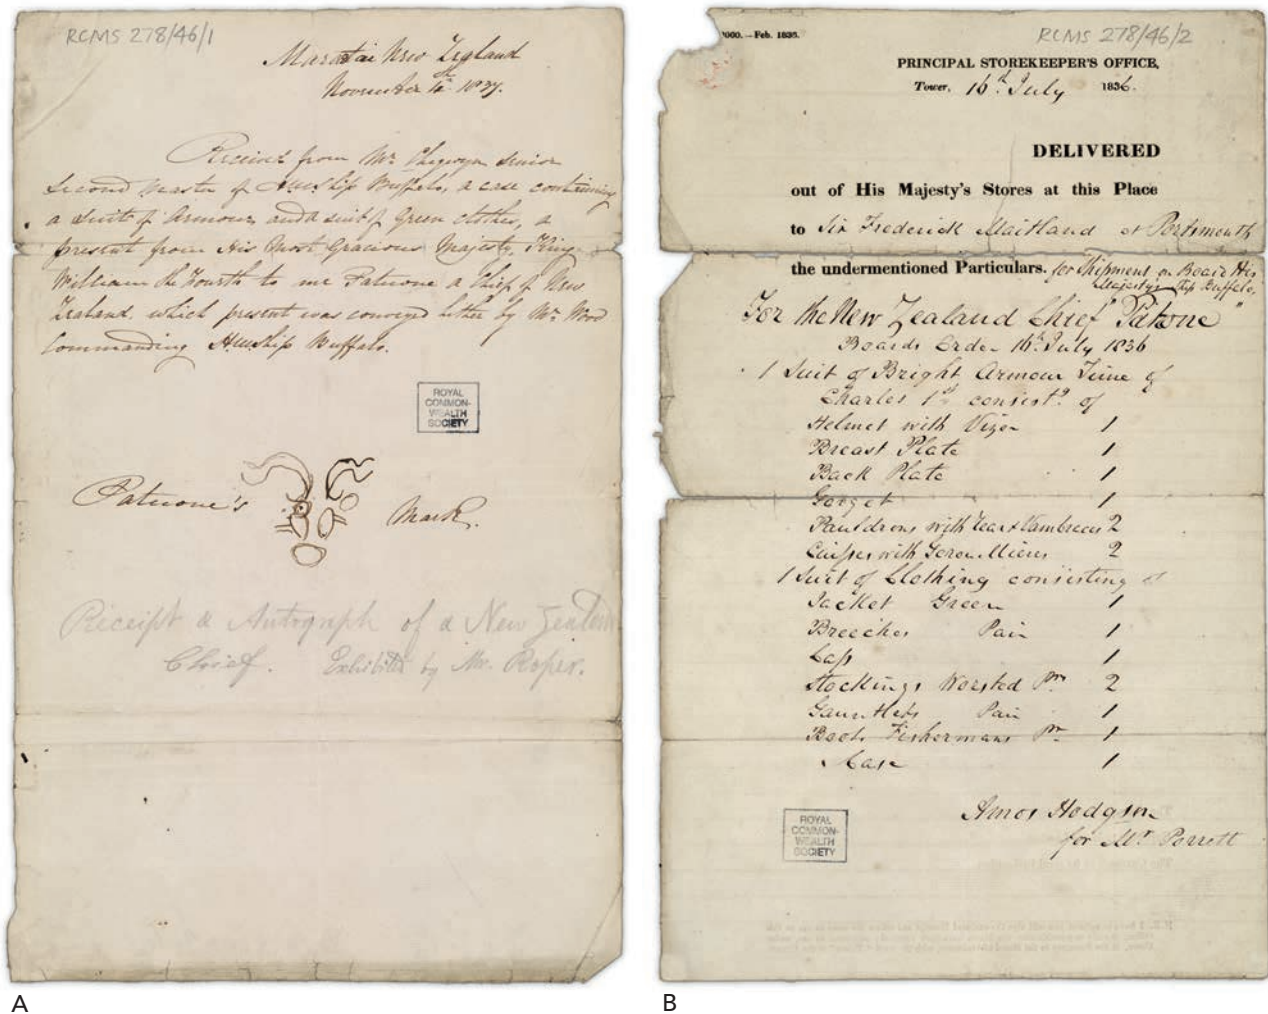 RCMS 278/46/1
Maraetai New Zealand
November 1837.
Received from Mr. Chegwyn Senior
Second Master of HMShip Buffalo, a case containing
a Suit of Armour and a suit of Green clothes, a
present from His Most Gracious Majesty, King
William the Fourth to me Patuone a Chief of New
Zealand. which present was conveyed hither by Mr. Wood
Commanding HMShip Buffalo.
ROYAL
COMMON-
WEALTH
SOCIETY
Patuone's Mark.
Receipt & Autograph of a New Zealand
Chief. Exhibited by Mr. Roper.
A
000.—Feb. 1836.
RCMS 278/46/2
PRINCIPAL STOREKEEPER'S OFFICE,
Tower, 16th July 1836.
DELIVERED
out of His Majesty's Stores at this Place
to Sir Frederick Maitland at Portsmouth
the undermentioned Particulars. for Shipment on Board His
Majesty's Ship Buffalo,
For the New Zealand Chief "Patone"
Boards Order 16th July 1836
1 Suit of Bright Armour Time of
Charles 1st consistg. of
Helmet with Vizor 1
Breast Plate 1
Back Plate 1
Gorget 1
Pauldrons with Vambraces 2
Cuisses with 2
1 Suit of Clothing consisting of
Jacket Green 1
Breeches Pair 1
Cap 1
Stockings Worsted Prs 2
Gauntlets Pair 1
Boots Fishermans Pr. 1
Case 1
Amos Hodgson
for Mr. Porrett
ROYAL
COMMON-
WEALTH
SOCIETY
B